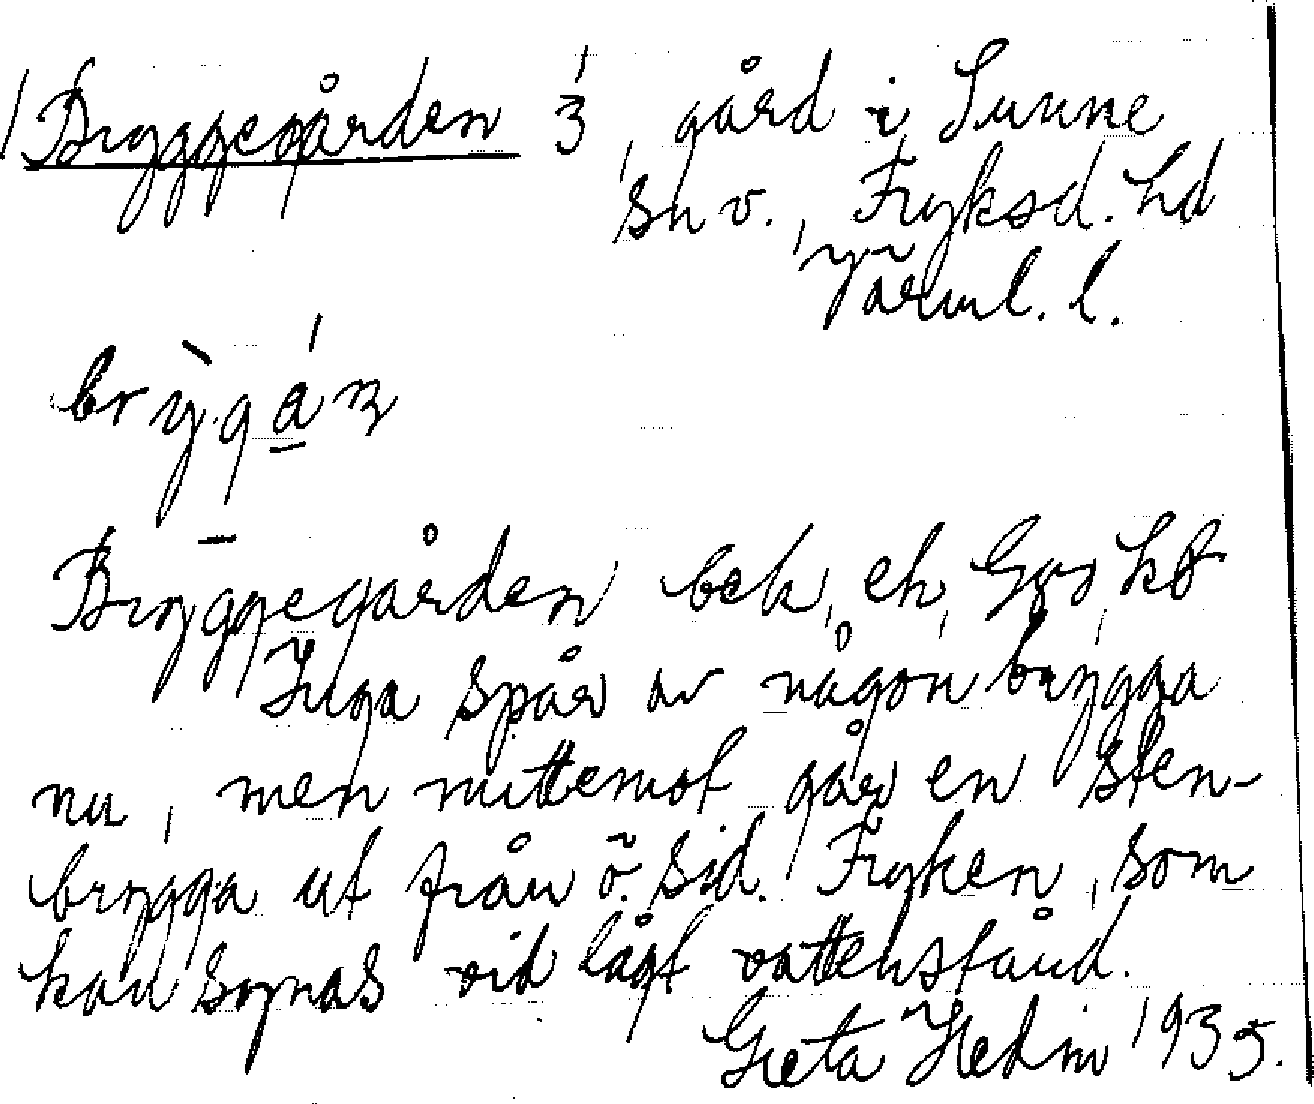 Bryggegården 1/3, gård i Sunne
sn v., Fryksd. hd
Värml. l.
Bryggegården bek, ek,
Inga spår av någon brygga
nu, men mittemot går en sten-
brygga ut från ö. sid. Fryken, som
kan synas vid lågt vattenstånd.
Greta Hedin 1935.